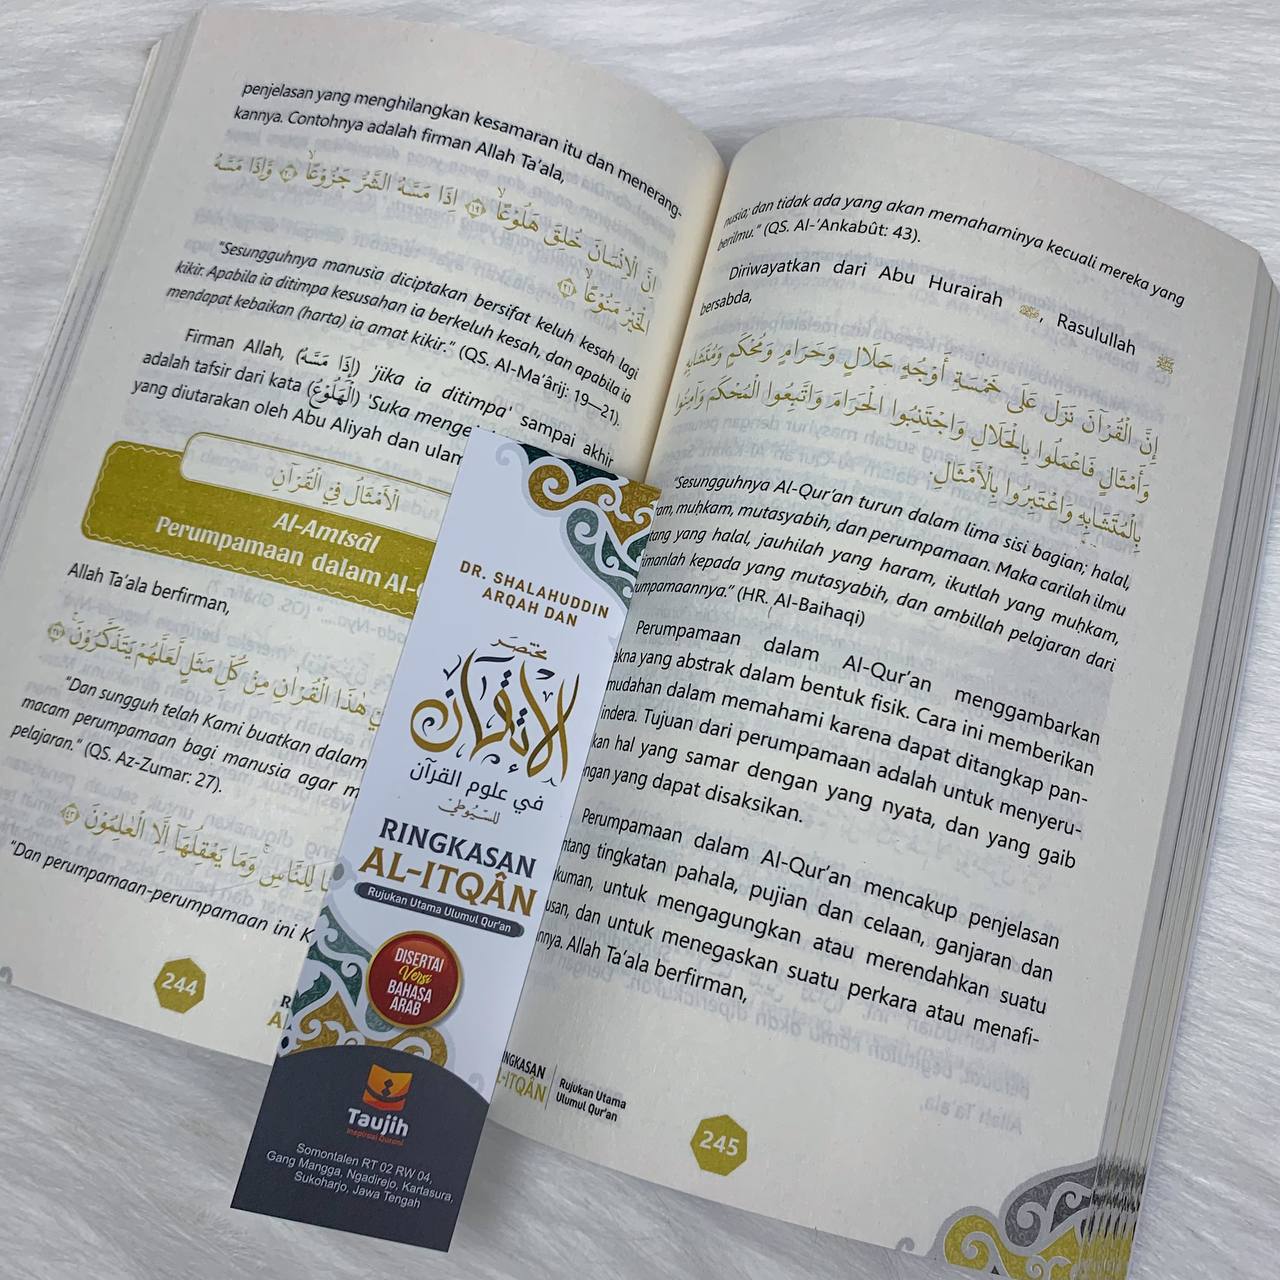 penjelasan yang menghilangkan kesamaran itu dan menerang-
kannya. Contohnya adalah firman Allah Ta'ala,
إِنَّ الْاِنْسَانَ خُلِقَ هَلُوْعًاۙ ﴿١٩﴾ اِذَا مَسَّهُ الشَّرُّ جَزُوْعًاۙ ﴿٢٠﴾ وَّاِذَا مَسَّهُ
الْخَيْرُ مَنُوْعًاۙ ﴿٢١﴾
"Sesungguhnya manusia diciptakan bersifat keluh kesah lagi
kikir. Apabila ia ditimpa kesusahan ia berkeluh kesah, dan apabila ia
mendapat kebaikan (harta) ia amat kikir." (QS. Al-Ma'ârij: 19—21).
Firman Allah, (إِذَا مَسَّهُ) 'jika ia ditimpa' sampai akhir
adalah tafsir dari kata (الْهَلُوْعُ) 'Suka
yang diutarakan oleh Abu Aliyah dan
الْأَمْثَالُ فِي الْقُرْآنِ
Al-Amtsâl
Perumpamaan dalam
Allah Ta'ala berfirman,
هٰذَا الْقُرْاٰنِ مِنْ كُلِّ مَثَلٍ لَّعَلَّهُمْ يَتَذَكَّرُوْنَۚ ﴿٢٧﴾
"Dan sungguh telah Kami buatkan dalam
macam perumpamaan bagi manusia agar
pelajaran." (QS. Az-Zumar: 27).
لِلنَّاسِۚ وَمَا يَعْقِلُهَآ اِلَّا الْعٰلِمُوْنَ ﴿٤٣﴾
"Dan perumpamaan-perumpamaan ini
244
DR. SHALAHUDDIN
ARQAH DAN
مختصر
الإتقان
في علوم القرآن
للسيوطي
RINGKASAN
AL-ITQÂN
Rujukan Utama Ulumul Qur'an
DISERTAI
Versi
BAHASA
ARAB
Taujih
Inspirasi Qurani
Somontalen RT 02 RW 04,
Gang Mangga, Ngadirejo, Kartasura,
Sukoharjo, Jawa Tengah
nusia; dan tidak ada yang akan memahaminya kecuali mereka yang
berilmu." (QS. Al-'Ankabût: 43).
Diriwayatkan dari Abu Hurairah, Rasulullah ﷺ
bersabda,
إِنَّ الْقُرْآنَ نَزَلَ عَلَى خَمْسَةِ أَوْجُهٍ حَلَالٍ وَحَرَامٍ وَمُحْكَمٍ وَمُتَشَابِهٍ
وَأَمْثَالٍ فَاعْمَلُوا بِالْحَلَالِ وَاجْتَنِبُوا الْحَرَامَ وَاتَّبِعُوا الْمُحْكَمَ وَآمِنُوا
بِالْمُتَشَابِهِ وَاعْتَبِرُوا بِالْأَمْثَالِ.
"Sesungguhnya Al-Qur'an turun dalam lima sisi bagian; halal,
muhkam, mutasyabih, dan perumpamaan. Maka carilah ilmu
yang halal, jauhilah yang haram, ikutlah yang muhkam,
kepada yang mutasyabih, dan ambillah pelajaran dari
(HR. Al-Baihaqi)
Perumpamaan dalam Al-Qur'an menggambarkan
yang abstrak dalam bentuk fisik. Cara ini memberikan
mudahan dalam memahami karena dapat ditangkap pan-
indera. Tujuan dari perumpamaan adalah untuk menyeru-
kan hal yang samar dengan yang nyata, dan yang gaib
yang dapat disaksikan.
Perumpamaan dalam Al-Qur'an mencakup penjelasan
tingkatan pahala, pujian dan celaan, ganjaran dan
untuk mengagungkan atau merendahkan suatu
dan untuk menegaskan suatu perkara atau menafi-
Allah Ta'ala berfirman,
RINGKASAN
AL-ITQÂN
Rujukan Utama
Ulumul Qur'an
245